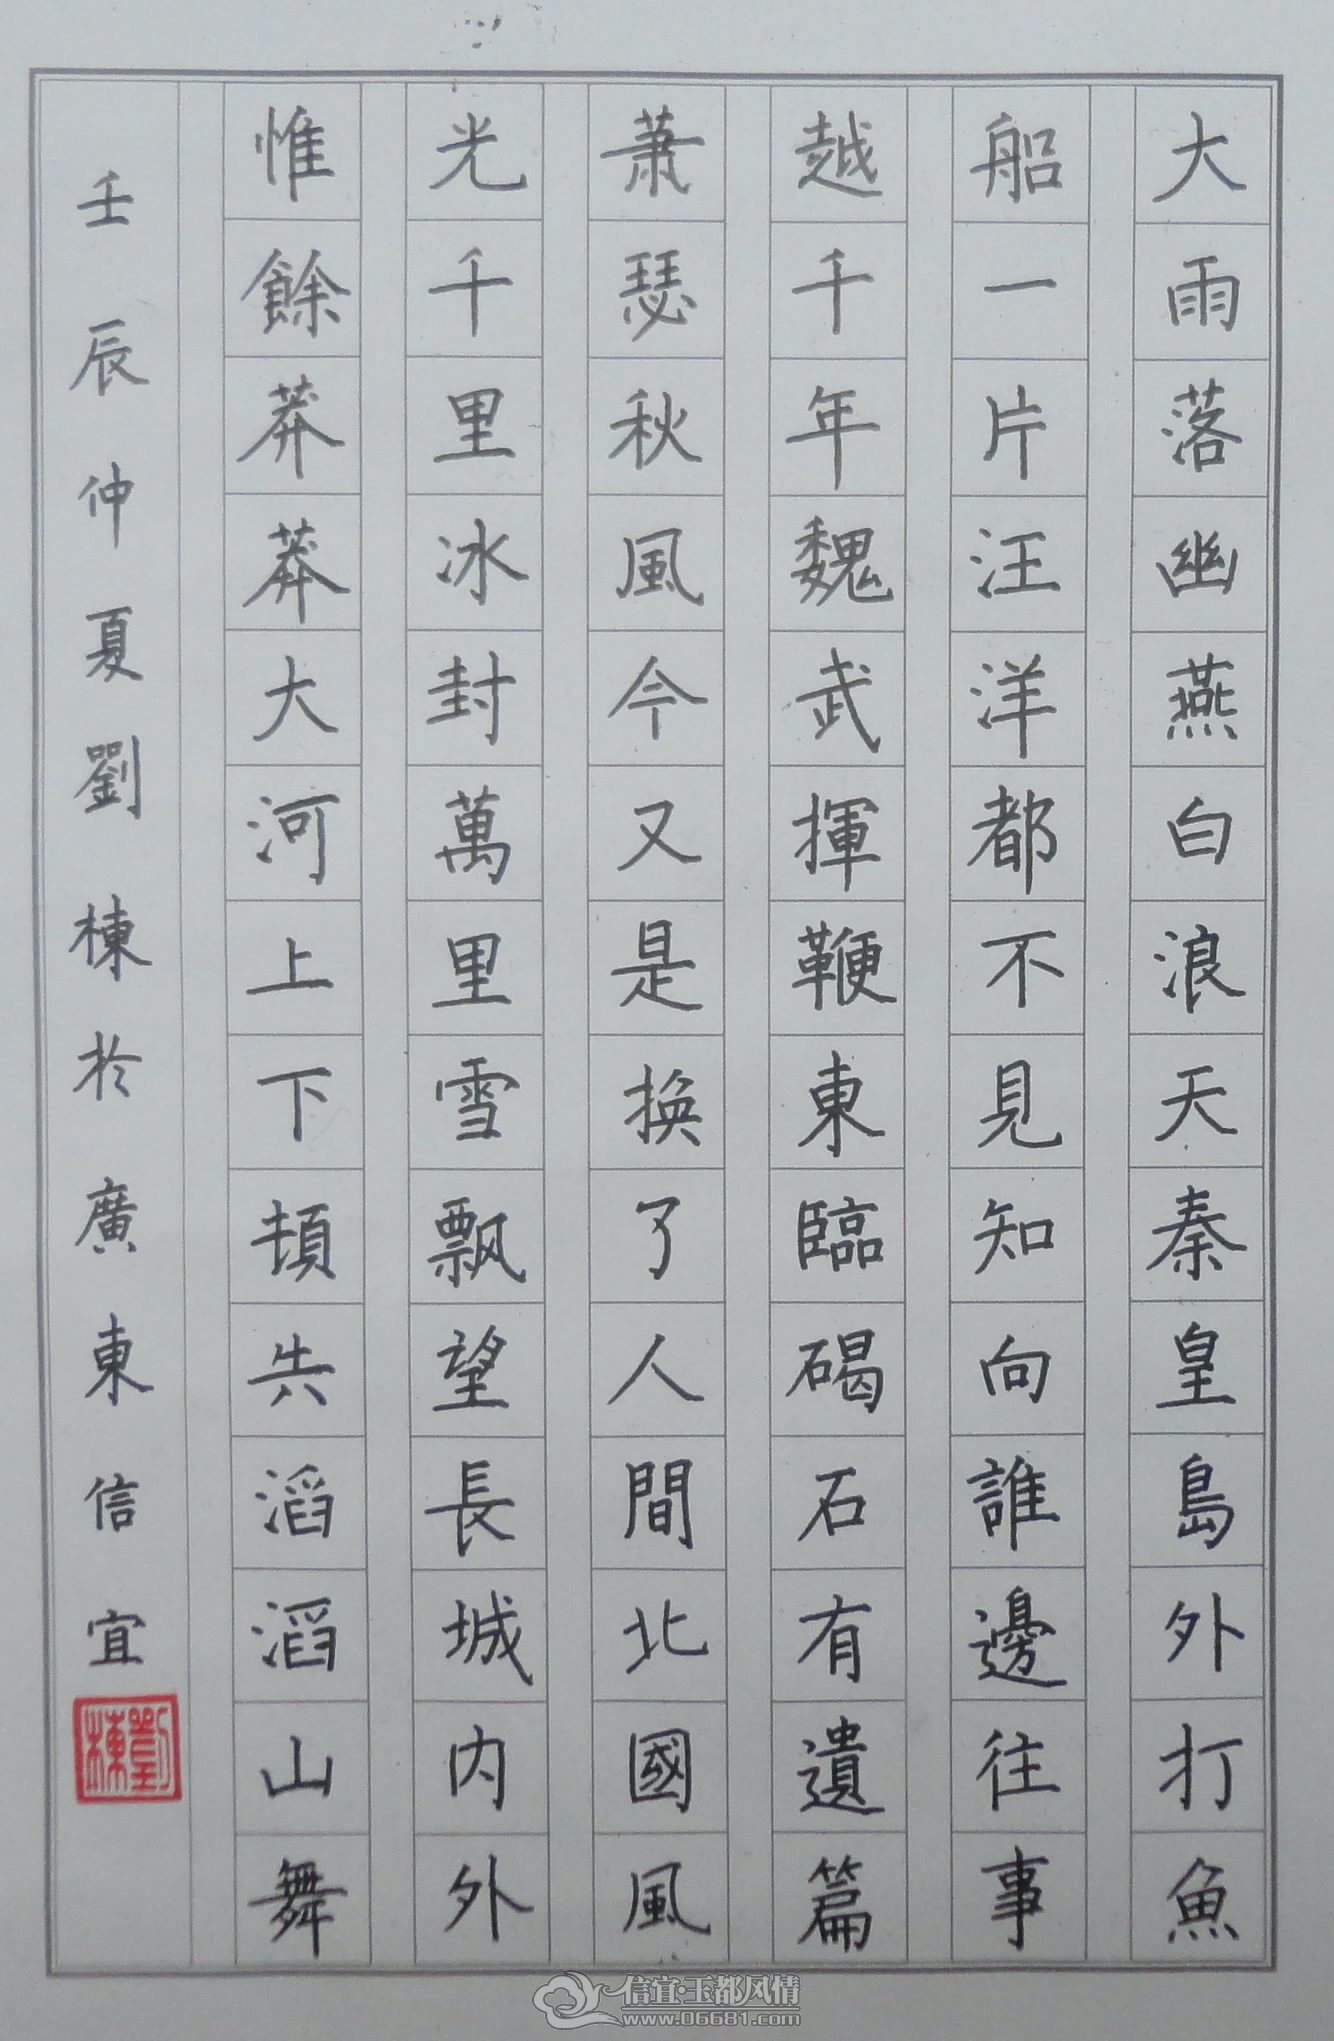 大雨落幽燕白浪天秦皇島外打魚
船一片汪洋都不見知向誰邊往事
越千年魏武揮鞭東臨碣石有遺篇
蕭瑟秋風今又是換了人間北國風
光千里冰封萬里雪飄望長城內外
惟餘莽莽大河上下頓失滔滔山舞
壬辰仲夏劉棟於廣東信宜
劉棟
信宜·玉都风情
www.06681.com